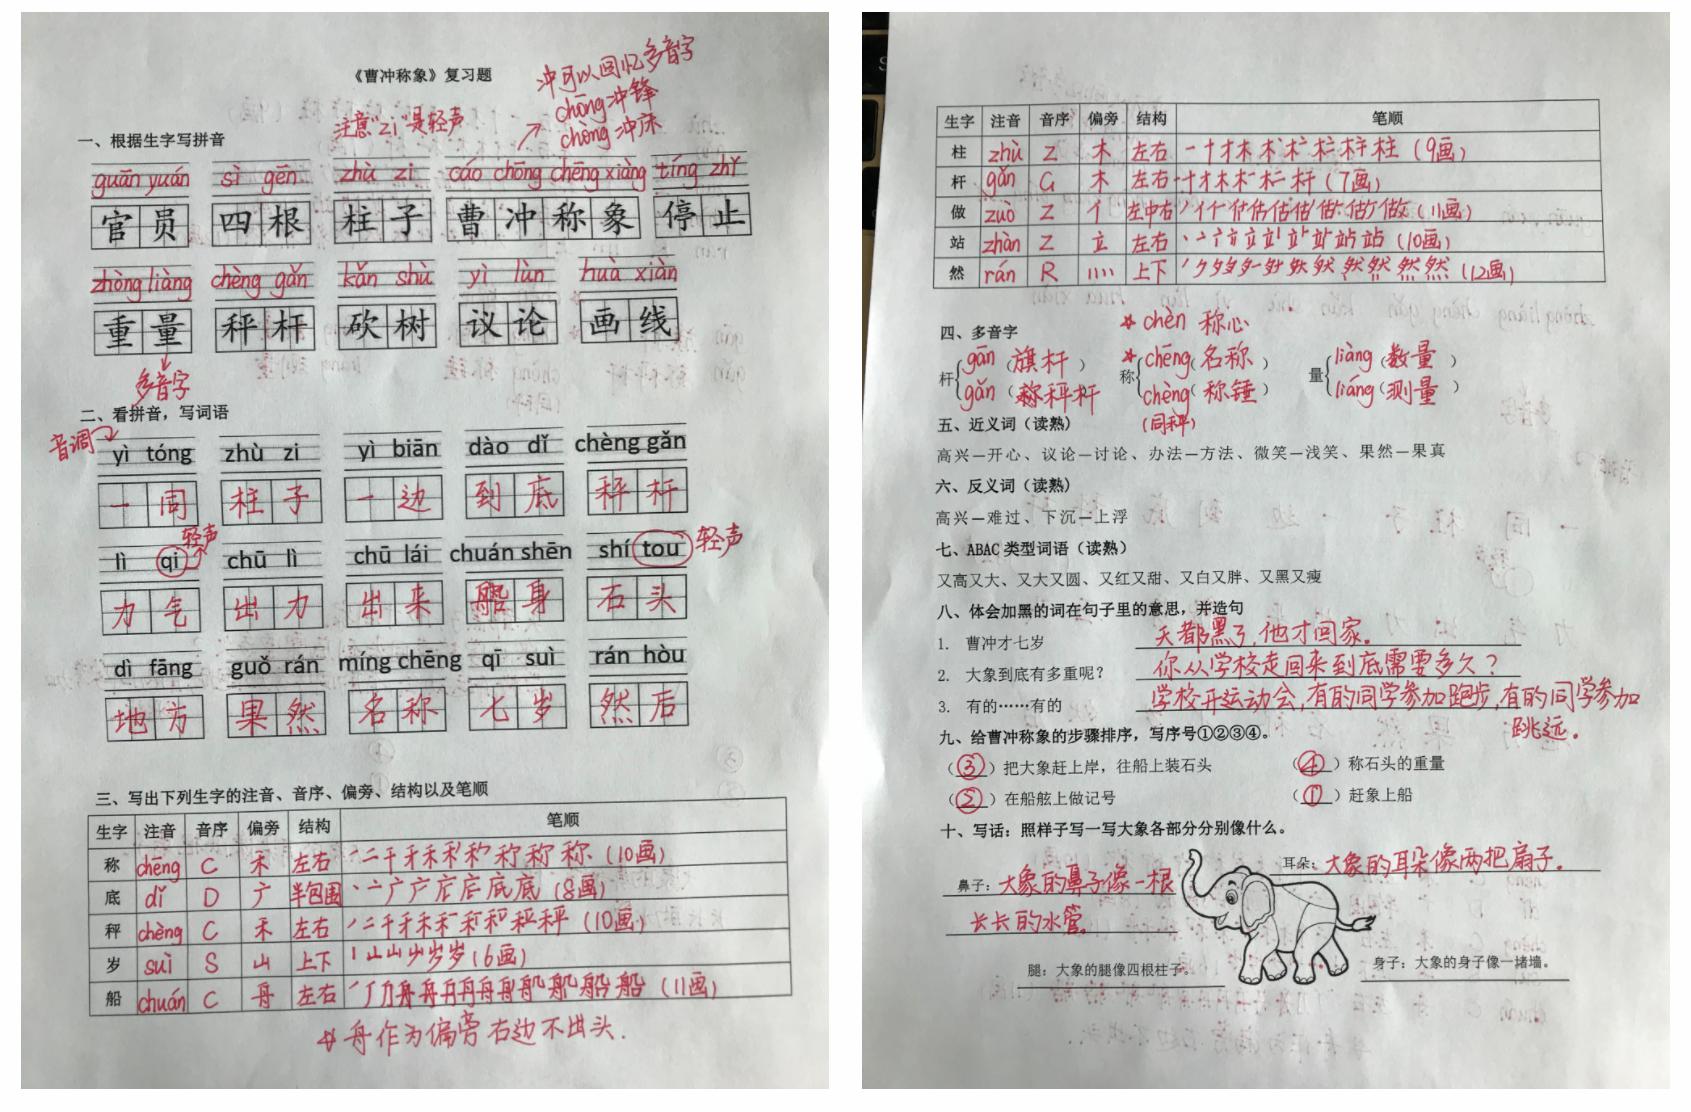 《曹冲称象》复习题
冲可以回忆多音字
chōng 冲锋
chòng 冲床
注意"zi"是轻声
一、根据生字写拼音
guān yuán sì gēn zhù zi cáo chōng chēng xiàng tíng zhǐ
官员 四根 柱子 曹冲称象 停止
zhòng liàng chèng gǎn kǎn shù yì lùn huà xiàn
重量 秤杆 砍树 议论 画线
多音字
二、看拼音，写词语
音调
yì tóng zhù zi yì biān dào dǐ chèng gǎn
一同 柱子 一边 到底 秤杆
轻声
lì qi chū lì chū lái chuán shēn shí tou 轻声
力气 出力 出来 船身 石头
dì fāng guǒ rán míng chēng qī suì rán hòu
地方 果然 名称 七岁 然后
三、写出下列生字的注音、音序、偏旁、结构以及笔顺
生字 注音 音序 偏旁 结构 笔顺
称 chēng C 禾 左右 (10画)
底 dǐ D 广 半包围 (8画)
秤 chèng C 禾 左右 (10画)
岁 suì S 山 上下 (6画)
船 chuán C 舟 左右 (11画)
☆舟作为偏旁右边不出头.
生字 注音 音序 偏旁 结构 笔顺
柱 zhù Z 木 左右 (9画)
杆 gǎn G 木 左右 (7画)
做 zuò Z 亻 左中右 (11画)
站 zhàn Z 立 左右 (10画)
然 rán R 灬 上下 (12画)
四、多音字
☆ chèn 称心
杆 gān (旗杆) ☆ chēng (名称) 量 liàng (数量)
gǎn (秤杆) 称 chèng (称锤) liáng (测量)
(同秤)
五、近义词（读熟）
高兴—开心、议论—讨论、办法—方法、微笑—浅笑、果然—果真
六、反义词（读熟）
高兴—难过、下沉—上浮
七、ABAC 类型词语（读熟）
又高又大、又大又圆、又红又甜、又白又胖、又黑又瘦
八、体会加黑的词在句子里的意思，并造句
1. 曹冲才七岁 天都黑了,他才回家.
2. 大象到底有多重呢？ 你从学校走回来到底需要多久?
3. 有的……有的 学校开运动会,有的同学参加跑步,有的同学参加
跳远.
九、给曹冲称象的步骤排序，写序号①②③④。
（③）把大象赶上岸，往船上装石头 （④）称石头的重量
（②）在船舷上做记号 （①）赶象上船
十、写话：照样子写一写大象各部分分别像什么。
耳朵：大象的耳朵像两把扇子.
鼻子：大象的鼻子像一根
长长的水管.
腿：大象的腿像四根柱子。 身子：大象的身子像一堵墙。